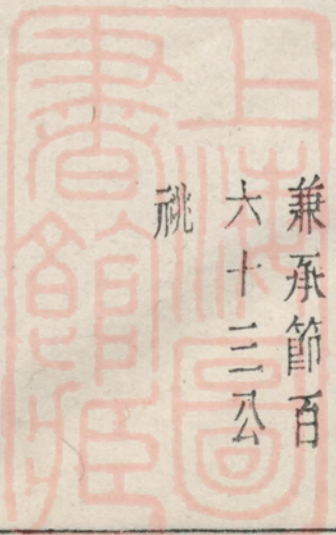 兼承節百
六十三公
祧
上海圖
書館藏